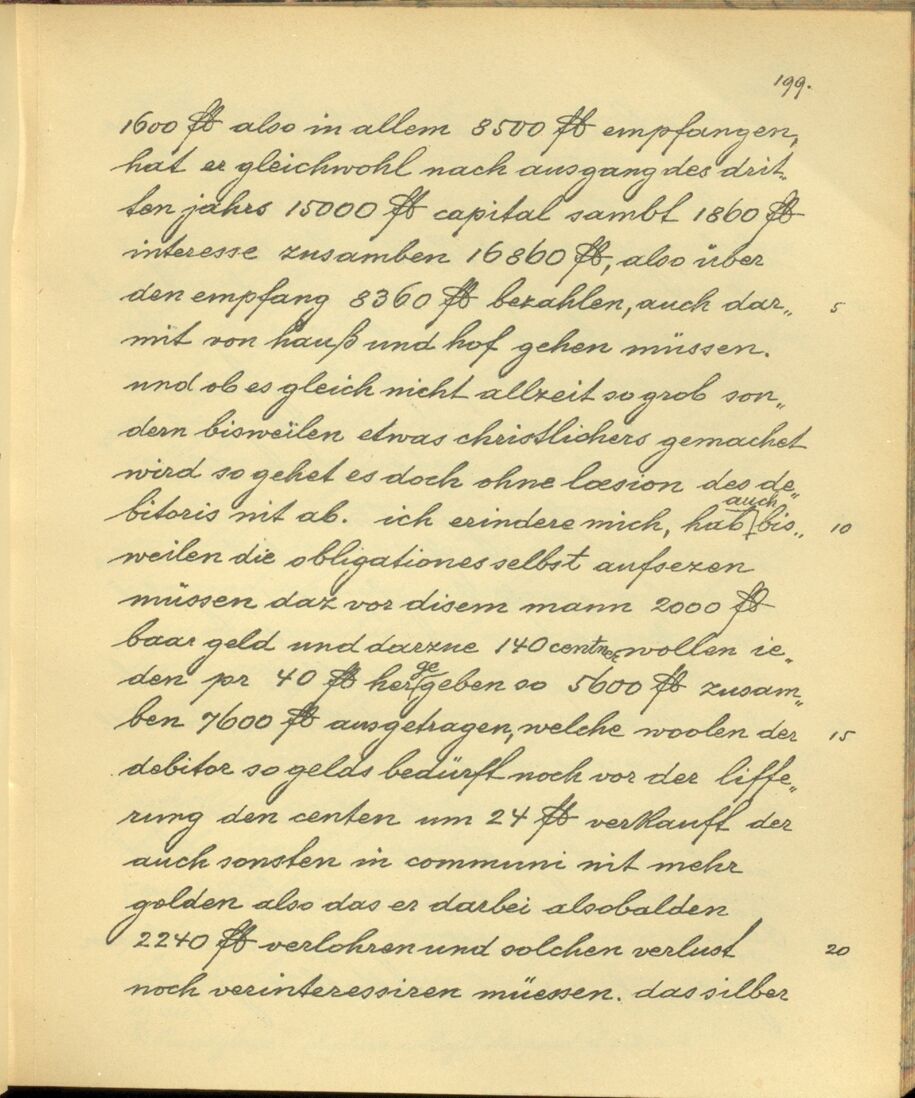 199.
1600 fl also in allem 8500 fl empfangen,
hat er gleichwohl nach ausgang des drit„
ten jahrs 15000 fl capital sambt 1860 fl
interesse zusamben 16860 fl, also über
den empfang 8360 fl bezahlen, auch dar„ 5
mit von hauß und hof gehen müssen.
und ob es gleich nicht allzeit so grob son„
dern bisweilen etwas christlichers gemachet
wird so gehet es doch ohne læsion des de„
bitoris nit ab. ich erindere mich, hab auch bis„ 10
weilen die obligationes selbst aufsezen
müssen daz vor disem mann 2000 fl
baar geld und darzue 140 centner wollen ie„
den pr 40 fl hergegeben so 5600 fl zusam„
ben 7600 fl ausgetragen, welche woolen der 15
debitor so gelds bedürft noch vor der liffe„
rung den centen um 24 fl verkauft der
auch sonsten in communi nit mehr
golden also das er darbei alsobalden
2240 fl verlohren und solchen verlust 20
noch verinteressiren müessen. das silber